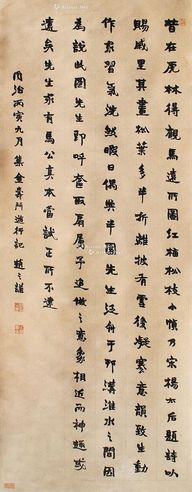 昔在虎林得觀馬遠所圖紅梅松枝小幀乃宋楊太后題詩以
賜戚里其畫松葉多半折離披有雪後凝寒意韻致生動
作家習氣洗然暇日偶與半園先生泛舟于邗溝淮水之間
為說此圖先生即呼取扇屬予追倣之意象相近而神趣或
遠矣先生家有馬公真本當試正所不逮
同治丙寅九月 集金壽門 趙之謙